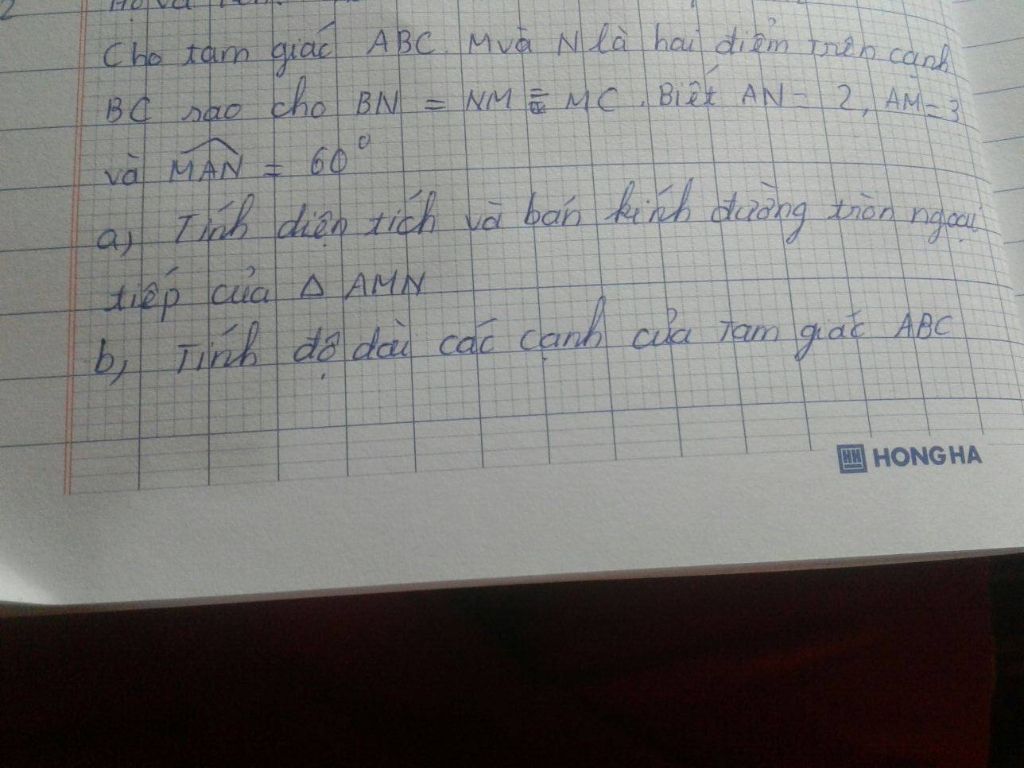 Cho tam giác ABC. M và N là hai điểm trên cạnh
BC sao cho BN = NM = MC. Biết AN = 2, AM = 3
và MAN = 60°
a, Tính diện tích và bán kính đường tròn ngoại
tiếp của Δ AMN
b, Tính độ dài các cạnh của tam giác ABC
HH HONG HA